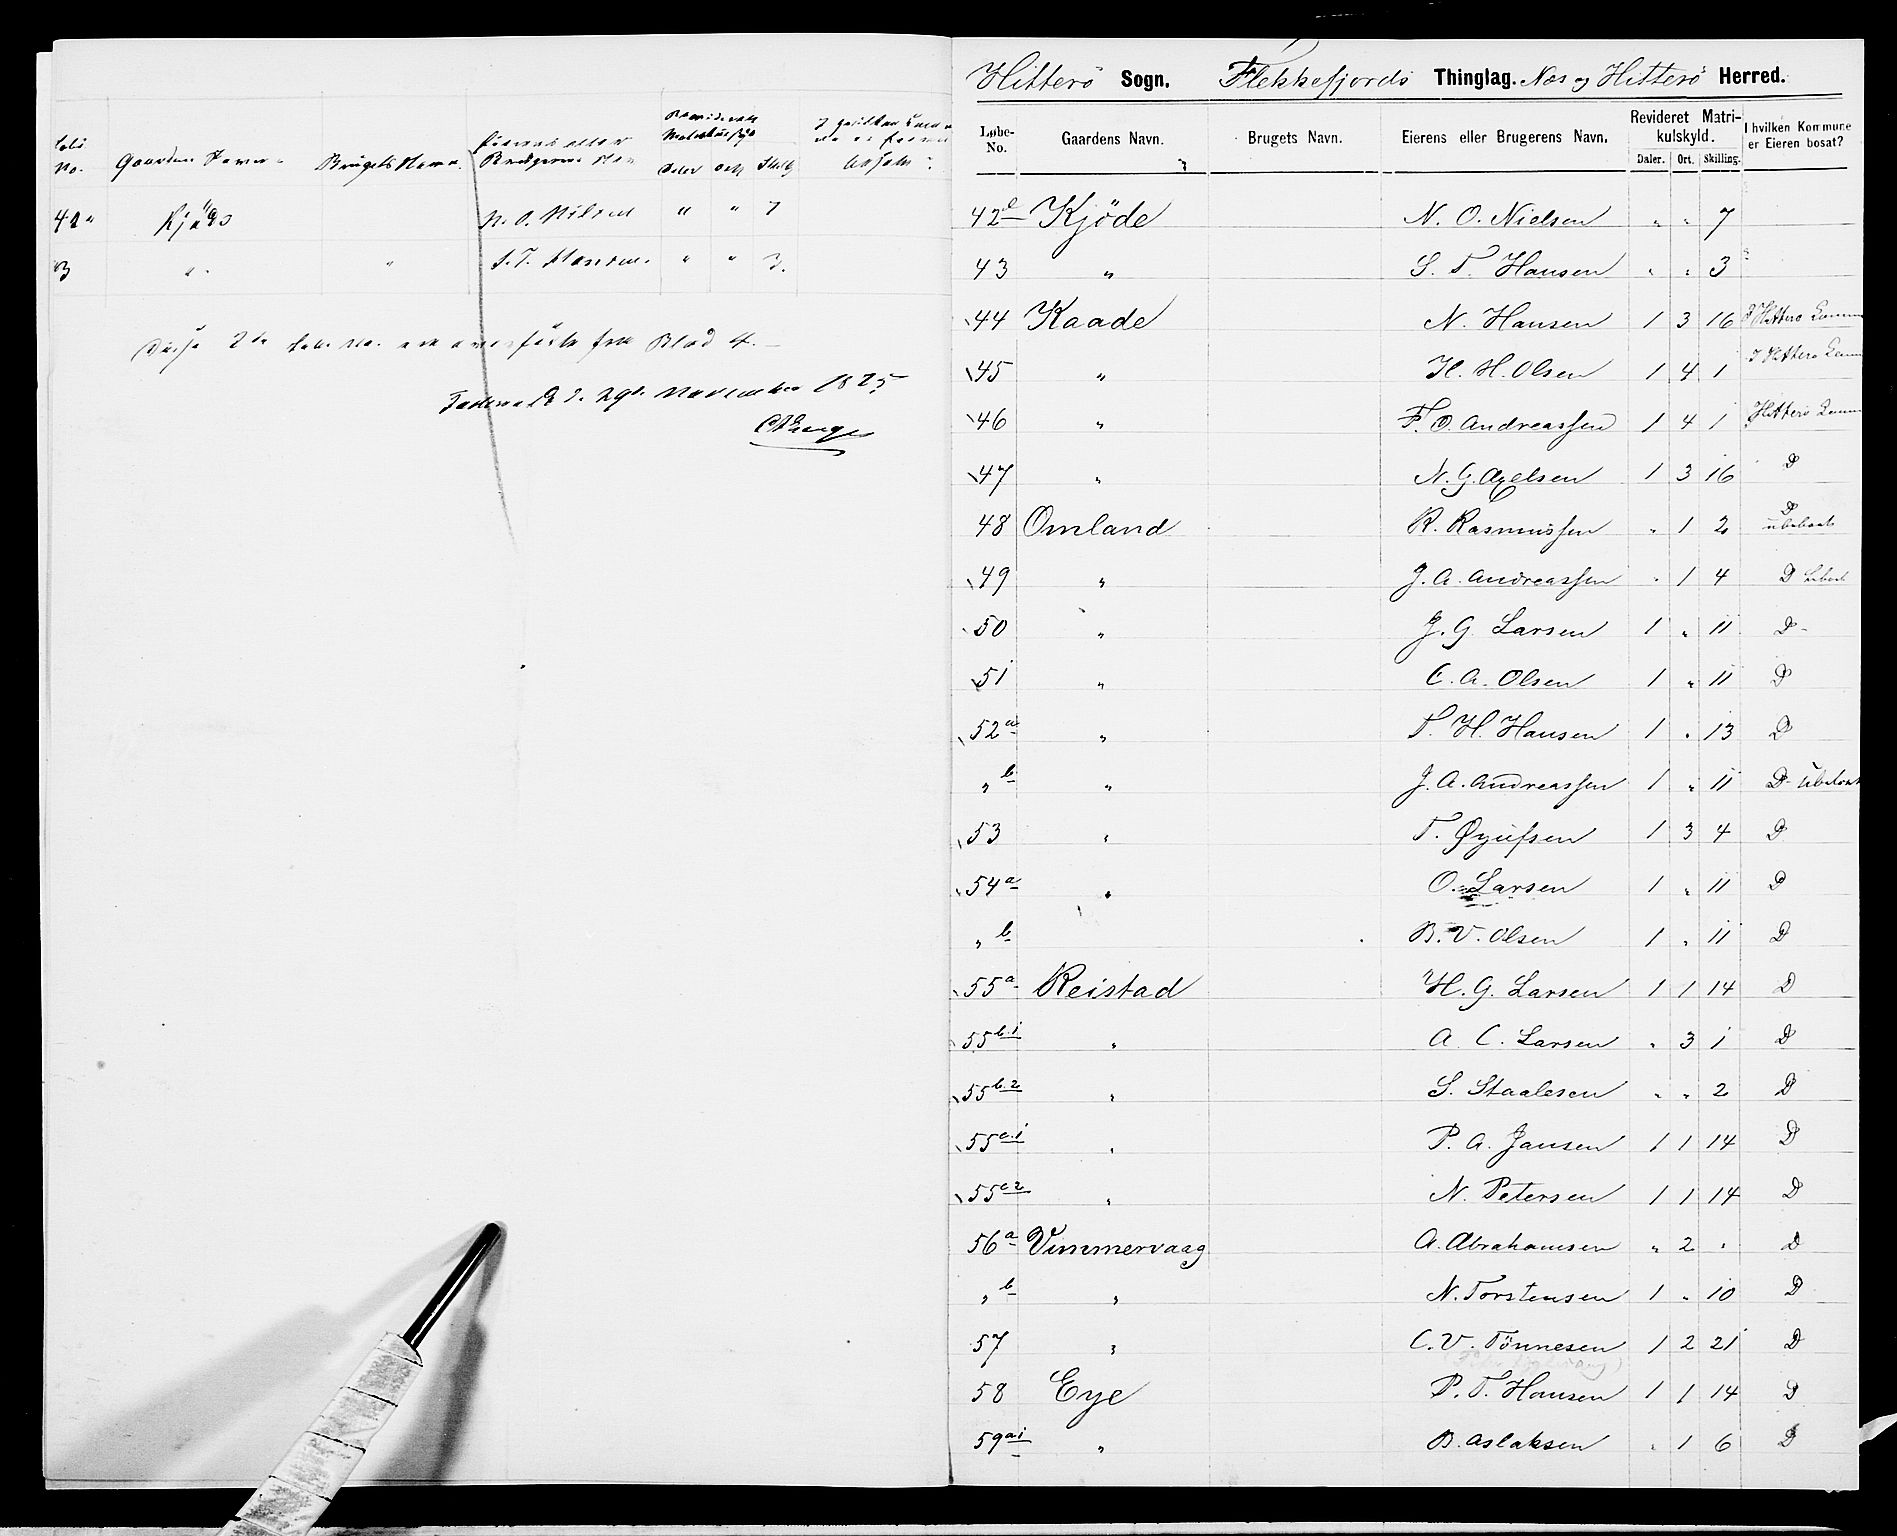 No. Gaardens Navn Brugets Navn.
42 Kjöde N. O. Nilsen " " 7
B " " S. T. Hansen. " " 3.
Disse 2de Løbe No. ere overførte fra Blad 4.
d. 29de November 1875
Hitterö Sogn. Flekkefjords Thinglag. Nes og Hitterö Herred.
Løbe-No. Gaardens Navn. Brugets Navn. Eierens eller Brugerens Navn. Revideret Matrikulskyld. Daler. Ort. Skilling. I hvilken Kommune er Eieren bosat?
42 Kjöde N. O. Nielsen " " 7
43 " S. T. Hansen " " 3
44 Kaade N. Hansen 1 3 16 Hitterö
45 " H. H. Olsen 1 4 1 Hitterö
46 " F. O. Andreassen 1 4 1 Hitterö
47 " N. G. Axelsen 1 3 16 D
48 Omland R. Rasmussen " 1 2 D ubeboet
49 " J. A. Andreassen " 1 4 D
50 " J. G. Larsen 1 " 11 D
51 " C. A. Olsen 1 " 11 D
52a " T. H. Hansen 1 " 13 D
" b " J. A. Andreassen 1 " 11 D
53 " T. Øyufsen 1 3 4 D
54a " O. Larsen 1 " 11 D
" b B. V. Olsen 1 " 11 D
55a Reistad H. G. Larsen 1 1 14 D
55b.1 " A. C. Larsen " 3 1 D
55b.2 " S. Staalesen " " 2 D
55c.1 " P. A. Jansen 1 1 14 D
55c2 " N. Petersen 1 1 14 D
56a Vummervaag A. Abrahamsen " 2 " D
" b " N. Torstensen 1 " 10 D
57 " C. V. Tönnesen 1 2 21 D
58 Eye P. T. Hansen 1 1 14 D
59a1 " B. Aslaksen " 1 6 D